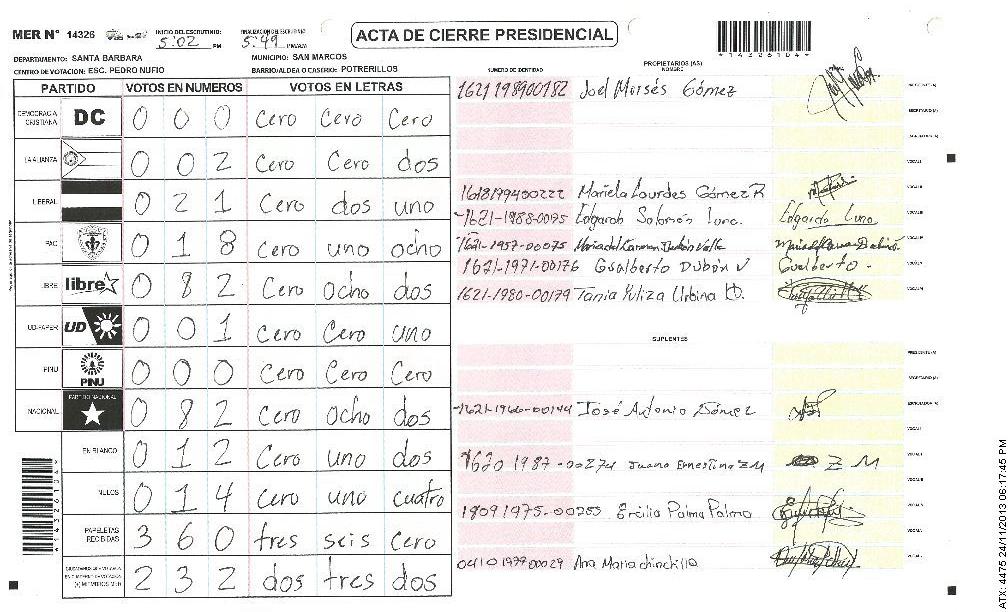 MER N° 14326 INICIO DEL ESCRUTINIO: 5:02 PM FINALIZACION DEL ESCRUTINIO: 5:49 PM/AM
ACTA DE CIERRE PRESIDENCIAL
DEPARTAMENTO: SANTA BARBARA MUNICIPIO: SAN MARCOS
CENTRO DE VOTACION: ESC. PEDRO NUFIO BARRIO/ALDEA O CASERIO: POTRERILLOS
PARTIDO VOTOS EN NUMEROS VOTOS EN LETRAS
DEMOCRACIA CRISTIANA DC 0 0 0 Cero Cero Cero
LA ALIANZA 0 0 2 Cero Cero dos
LIBERAL 0 2 1 Cero dos uno
PAC 0 1 8 Cero uno ocho
LIBRE libre 0 8 2 Cero Ocho dos
UD-FAPER UD 0 0 1 Cero Cero uno
PINU PINU 0 0 0 Cero Cero Cero
NACIONAL PARTIDO NACIONAL 0 8 2 Cero Ocho dos
EN BLANCO 0 1 2 Cero uno dos
NULOS 0 1 4 Cero uno cuatro
PAPELETAS RECIBIDAS 3 6 0 tres seis cero
2 3 2 dos tres dos
NUMERO DE IDENTIDAD PROPIETARIOS (AS) NOMBRE
1621198900182 Joel Moisés Gómez
1618199400222 Mariela Lourdes Gómez R
1621-1988-0095 Edgardo Salomón Luna. Edgardo Luna
1621-1957-00075 Maria del Carmen Dubón Valle
1621-1971-00176 Gualberto Dubón V Gualberto.
1621-1980-00179 Tania Yuliza Urbina
SUPLENTES
1621-1966-00144 José Antonio Gómez
1620 1987-00274 Juana Ernestina Z M Z M
18091975-00253 Ercilia Palma Palma
0410197900029 Ana Maria chinchilla
ATX: 4475 24/11/2013 06:17:45 PM